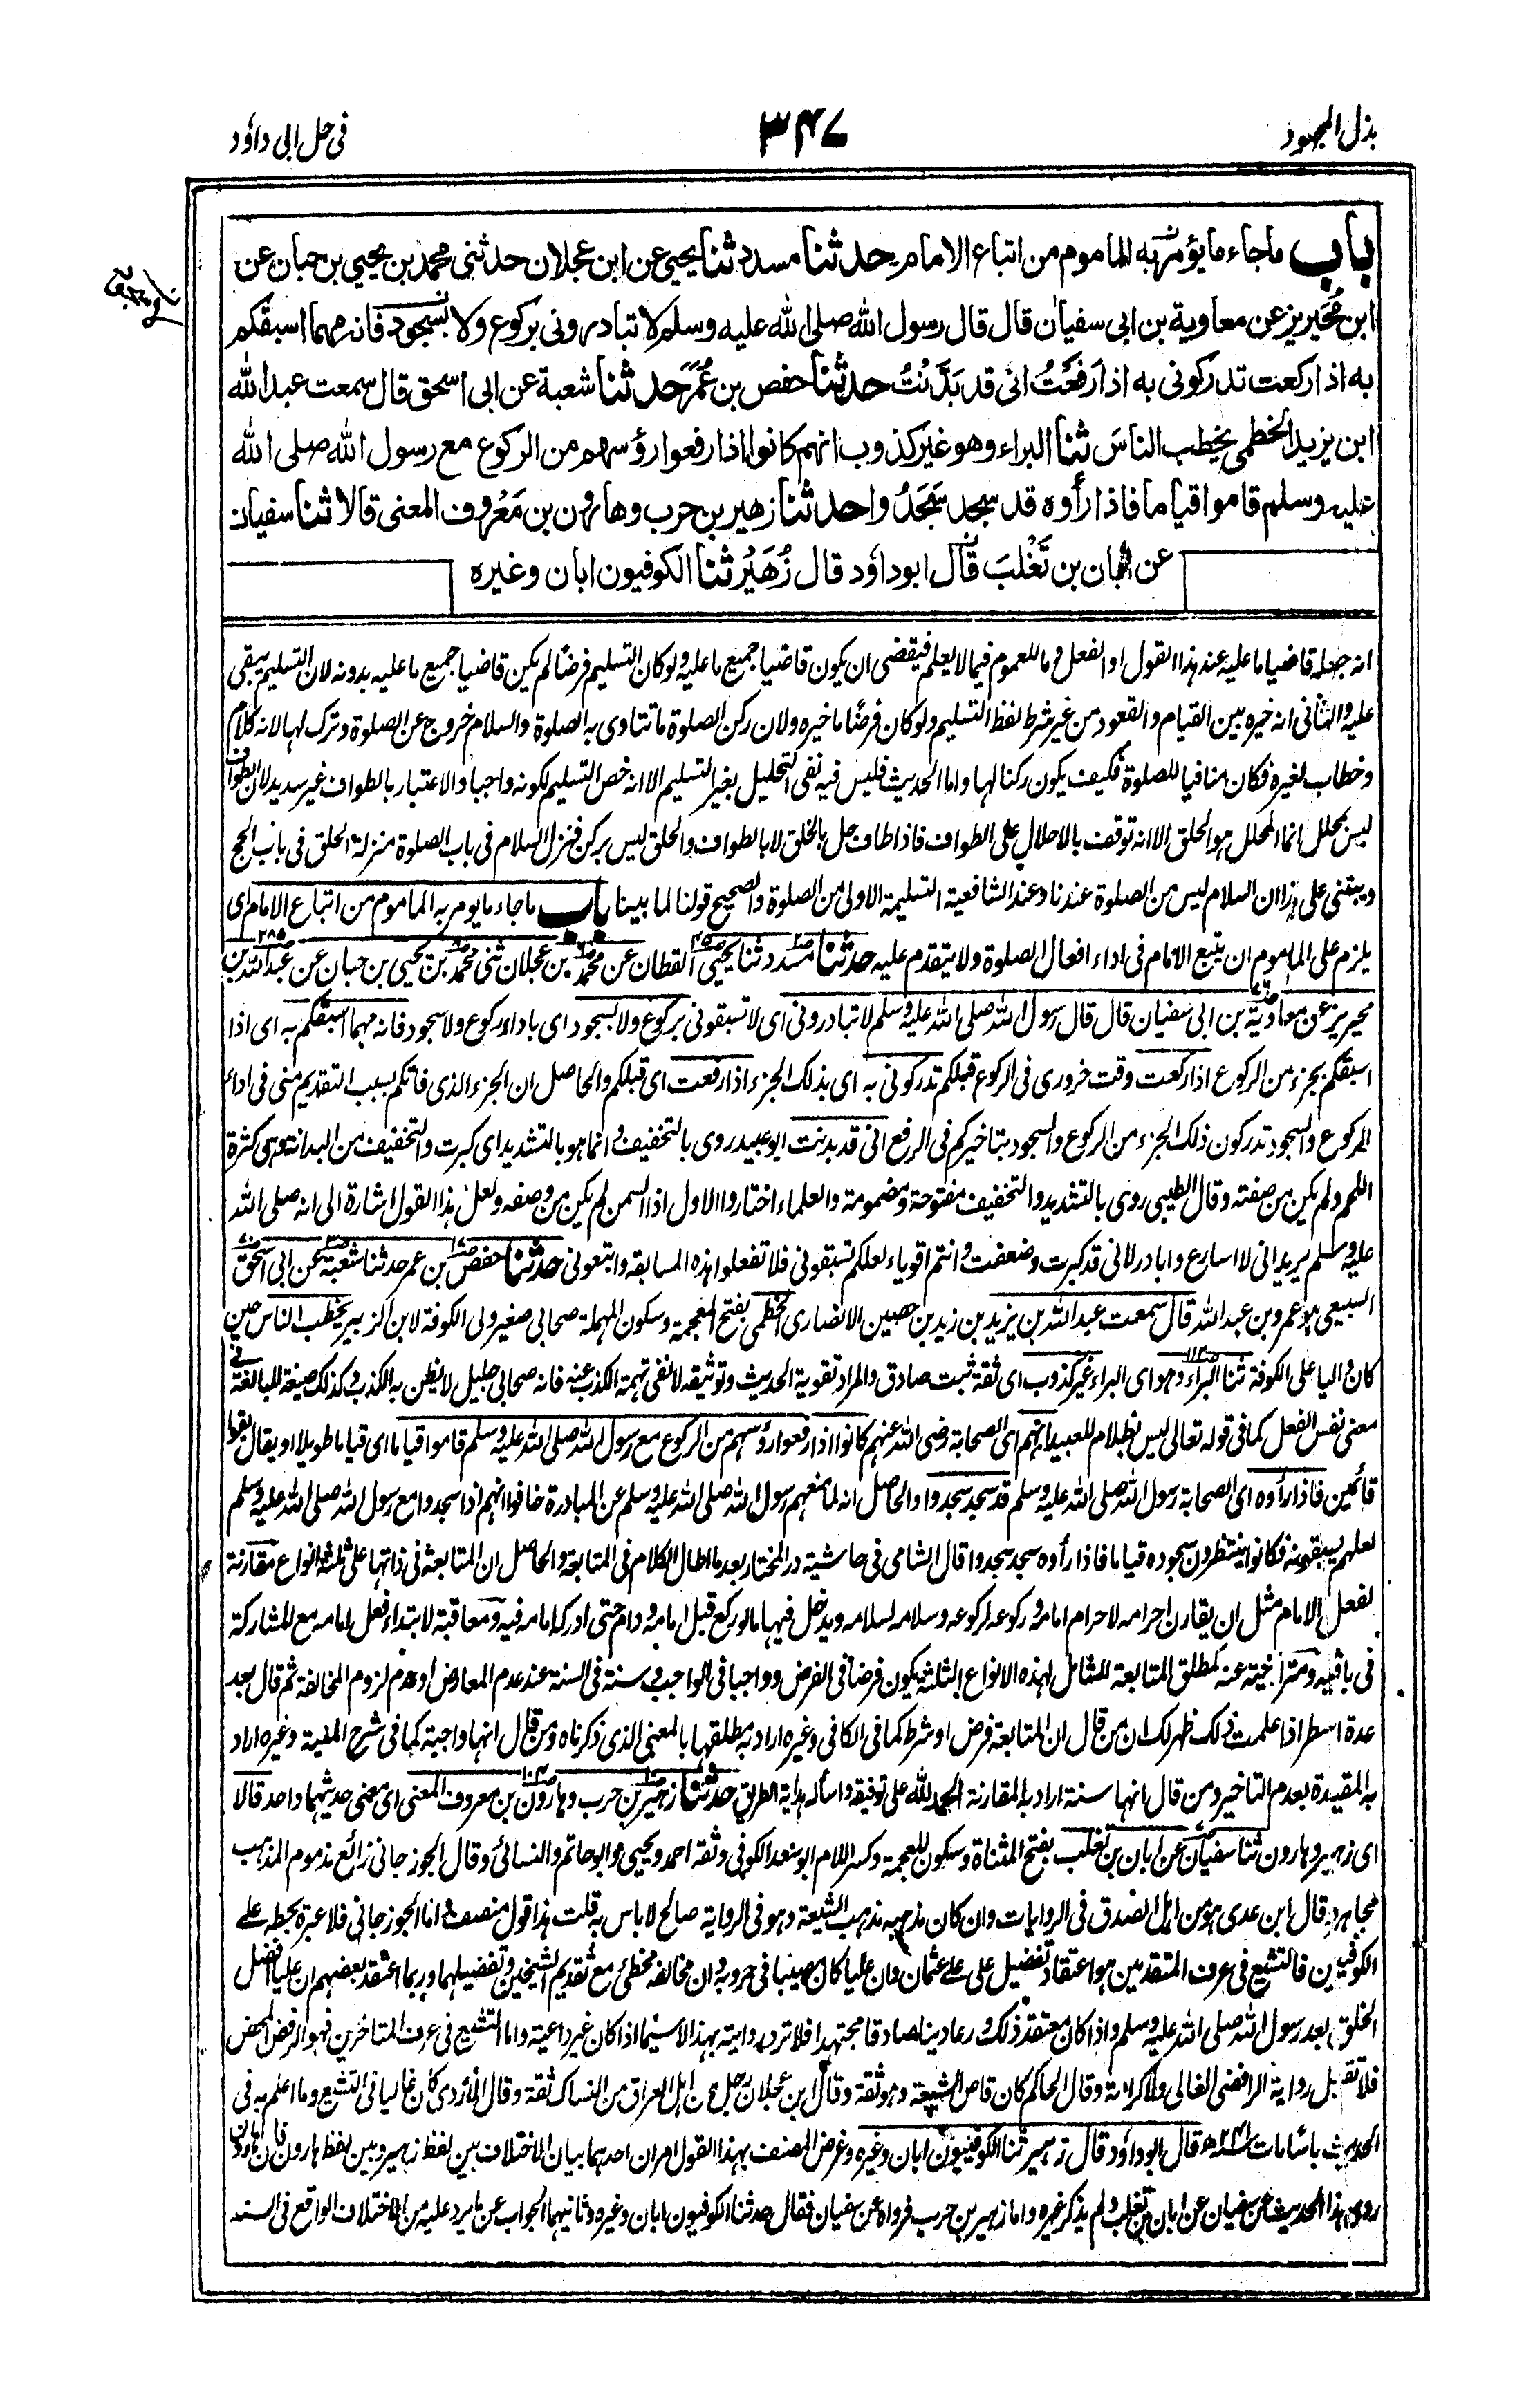 بذل المجهود
٣٤٧
في حل ابي داؤد
باب ماجاء مايؤمر به الماموم من اتباع الامام حدثنا مسدد ثنا يحيى عن ابن عجلان حدثني محمد بن يحيي بن حبان عن
ابن مُحَيريز عن معاوية بن ابى سفيان قال قال رسول الله صلى الله عليه وسلم لا تبادروني بركوع ولا بسجود فانه مهما اسبقكم
به اذا ركعت تدركونى به اذا رَفَعَتُ انى قد بَدَّنْتُ حدثنا حفص بن عُمَرَ حدثنا شعبة عن ابى اسحق قال سمعت عبد الله
ابن يزيد الخطمى يخطب الناسَ ثنا البراء وهو غير كذوب انهم كانوا اذا رفعوا رؤسهم من الركوع مع رسول الله صلى الله
عليه وسلم قاموا قياما فاذا رأوه قد سجد سَجَدُوا حدثنا زهير بن حرب وهارون بن مَعْرُوف المعنى قالا ثنا سفيان
عن ابان بن تَغْلبَ قال ابوداؤد قال زُهَيْرُ ثنا الكوفيون ابان وغيره
انه جعله قاضيا ما عليه عند هذا القول او الفعل وما للعموم فيما لا يعلم فيقضى ان يكون قاضيا جميع ما عليه ولو كان التسليم فرضًا لم يكن قاضيا جميع ما عليه بدونه لان التسليم يبقى
عليه والثانى انه خيره بين القيام والقعود من غير شرط لفظ التسليم ولو كان فرضًا ما خيره ولان ركن الصلوة ما تتاوى به الصلوة والسلام خروج عن الصلوة وترك لها لانه كلام
وخطاب لغيره فكان منافيا للصلوة فكيف يكون ركنا لها واما الحديث فليس فيه نفى التحليل بغير التسليم الا انه خص التسليم لكونه واجبا والاعتبار بالطواف غير سديد لان الطواف
ليس بمحلل انما المحلل هو الحلق الا انه توقف بالاحلال على الطواف فاذا طاف حل بالحلق لا بالطواف والحلق ليس بركن فنزل السلام فى باب الصلوة منزلة الحلق فى باب الحج
ويبتنى على هذا ان السلام ليس من الصلوة عندنا وعند الشافعية التسليمة الاولى من الصلوة والصحيح قولنا لما بينا باب ماجاء مايومر به الماموم من اتباع الامام اى
يلزم على الماموم ان يتبع الامام فى اداء افعال الصلوة ولا يتقدم عليه حدثنا مسدد ثنا يحيى القطان عن محمد بن عجلان ثنى محمد بن يحيى بن حبان عن عبد الله بن
محيريز عن معاوية بن ابى سفيان قال قال رسول الله صلى الله عليه وسلم لا تبادرونى اى لا تسبقونى بركوع ولا بسجود اى باداء ركوع ولا سجود فانه مهما اسبقكم به اى اذا
اسبقكم بجزء من الركوع اذا ركعت وقت خرورى فى الركوع قبلكم تدركونى به اى بذلك الجزء اذا رفعت اى قبلكم والحاصل ان الجزء الذى فاتكم بسبب التقديم منى فى اداء
الركوع والسجود تدركون ذلك الجزء من الركوع والسجود بتاخيركم فى الرفع انى قد بدنت ابو عبيد روى بالتخفيف وانما هو بالتشديد اى كبرت والتخفيف من البدانة وهى كثرة
اللحم ولم يكن من صفته وقال الطيبى روى بالتشديد والتخفيف مفتوحة ومضمومة والعلماء اختاروا الاول اذا السمن لم يكن من وصفه ولعل هذا القول اشارة الى انه صلى الله
عليه وسلم يريد انى لا اسارع وابادر لانى قد كبرت وضعفت وانتم اقوياء لعلكم تسبقونى فلا تفعلوا هذه المسابقه واتبعونى حدثنا حفص بن عمر حدثنا شعبة عن ابى اسحق
السبيعى هو عمرو بن عبد الله قال سمعت عبد الله بن يزيد بن زيد بن حصين الانصارى الخطمى بفتح المعجمة وسكون المهملة صحابى صغير ولى الكوفة لابن الزبير يخطب الناس حين
كان واليا على الكوفة ثنا البراء وهو اى البراء غير كذوب اى ثقة ثبت صادق والمراد تقوية الحديث وتوثيقه لا نفى تهمة الكذب عنه فانه صحابى جليل لا يظن به الكذب وكذلك صيغة المبالغة فى
معنى نفس الفعل كما فى قوله تعالى ليس بظلام للعبيد انهم اى الصحابة رضى الله عنهم كانوا اذا رفعوا رؤسهم من الركوع مع رسول الله صلى الله عليه وسلم قاموا قياما اى قياما طويلا او يقال بقوا
قائمين فاذا رأوه اى الصحابة رسول الله صلى الله عليه وسلم قد سجد سجدوا والحاصل انه لما منعهم رسول الله صلى الله عليه وسلم عن المبادرة خافوا انهم اذا سجدوا مع رسول الله صلى الله عليه وسلم
لعلهم يسبقونه فكانوا ينتظرون سجوده قياما فاذا رأوه سجد سجدوا قال الشامى فى حاشية در المختار بعد ما اطال الكلام فى المتابعة والحاصل ان المتابعة فى ذاتها على ثلثة انواع مقارنة
لفعل الامام مثل ان يقارن احرامه لاحرام امامه وركوعه لركوعه وسلامه لسلامه ويدخل فيها ما لو ركع قبل امامه ودام حتى ادركه امامه فيه ومعاقبة لابتداء فعل امامه مع المشاركة
فى باقيه ومتراخية عنه كمطلق المتابعة الشامل لهذه الانواع الثلثة يكون فرضا فى الفرض وواجبا فى الواجب وسنة فى السنة عند عدم المعارض او عدم لزوم المخالفة ثم قال بعد
عدة اسطر اذا علمت ذلك ظهر لك ان من قال ان المتابعة فرض او شرط كما فى الكافى وغيره اراد به مطلقها بالمعنى الذى ذكرناه ومن قال انها واجبة كما فى شرح المنية وغيره اراد
به المقيدة بعدم التاخير ومن قال انها سنة اراد به المقارنة الحمد لله على توفيقه واسأله هداية الطريق حدثنا زهير بن حرب وهارون بن معروف المعنى اى معنى حديثهما واحد قالا
اى زهير وهارون ثنا سفيان عن ابان بن تغلب بفتح المثناة وسكون المعجمة وكسر اللام ابو سعد الكوفى وثقه احمد ويحيى وابو حاتم والنسائى وقال الجوزجانى زائع مذموم المذهب
مجاهر وقال ابن عدى هو من اهل الصدق فى الروايات وان كان مذهبه مذهب الشيعة وهو فى الرواية صالح لا باس به قلت هذا قول منصف واما الجوزجانى فلا عبرة بحطه على
الكوفيين فالتشيع فى عرف المتقدمين هو اعتقاد تفضيل على على عثمان وان عليا كان مصيبا فى حروبه وان مخالفه مخطئ مع تقديم الشيخين وتفضيلهما وربما اعتقد بعضهم ان عليا افضل
الخلق بعد رسول الله صلى الله عليه وسلم واذا كان معتقد ذلك ورعا دينا صادقا مجتهدا فلا ترد روايته بهذا لا سيما اذا كان غير داعية واما التشيع فى عرف المتاخرين فهو الرفض المحض
فلا تقبل رواية الرافضى الغالى ولا كرامة وقال الحاكم كان قاص الشيعة وهو ثقة وقال ابن عجلان رجل من اهل العراق من النساك ثقة وقال الازدى كان غاليا فى التشيع وما اعلم به فى
الحديث باسا مات سنة ٢٤١ه قال ابوداؤد قال زهير ثنا الكوفيون ابان وغيره وغرض المصنف بهذا القول امران احدهما بيان الاختلاف بين لفظ زهير وبين لفظ هارون فان هارون
روى هذا الحديث عن سفيان عن ابان بن تغلب ولم يذكر غيره واما زهير بن حرب فرواه عن سفيان فقال حدثنا الكوفيون ابان وغيره وثانيهما الجواب عن ما يرد عليه من الاختلاف الواقع فى السند